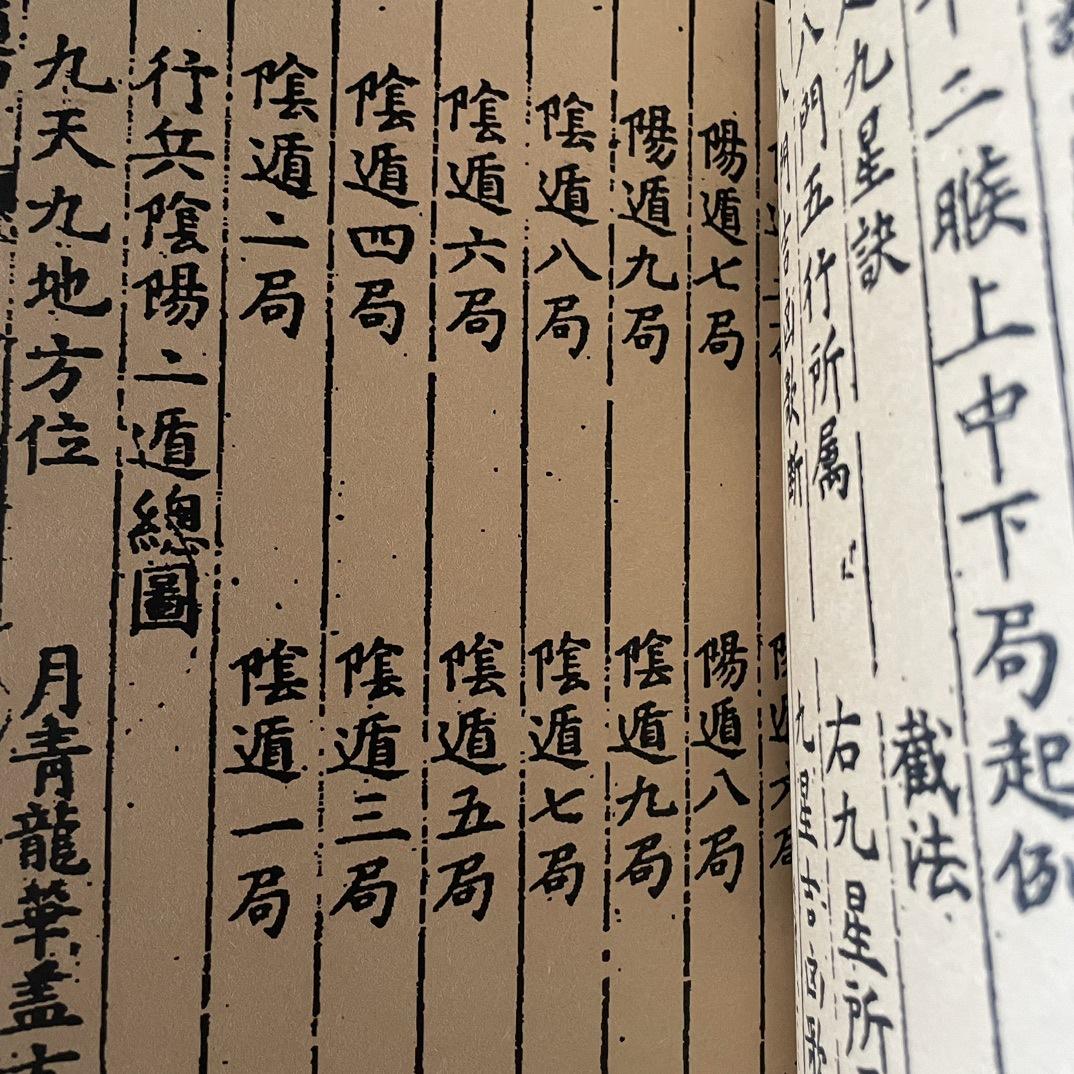 二候上中下局起例
截法
九星訣
右九星所
八門五行所属
九星吉凶歌
陽遁七局
陽遁八局
陽遁九局
陰遁九局
陰遁八局
陰遁七局
陰遁六局
陰遁五局
陰遁四局
陰遁三局
陰遁二局
陰遁一局
行兵陰陽二遁總圖
九天九地方位
月青龍華盖方